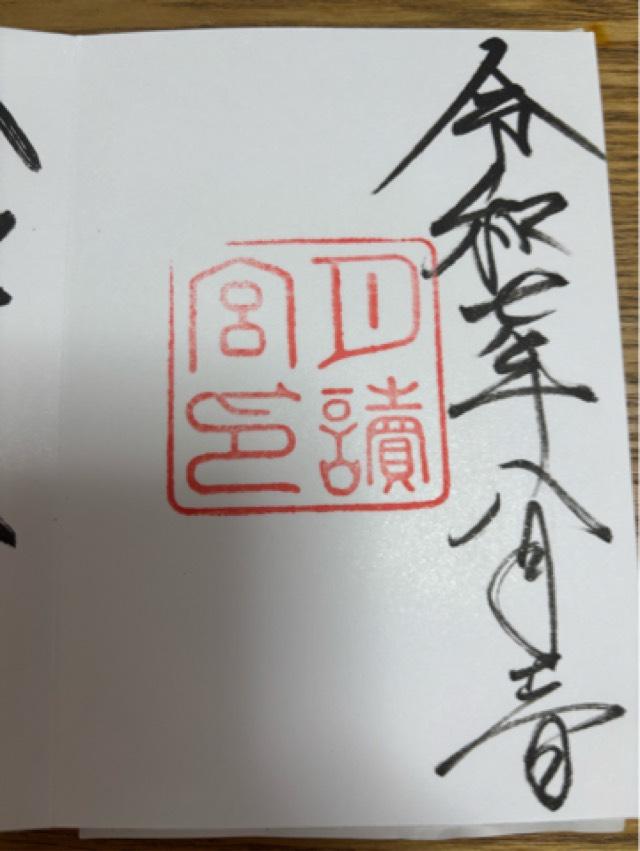 令和七年八月十一日
月讀
宮印